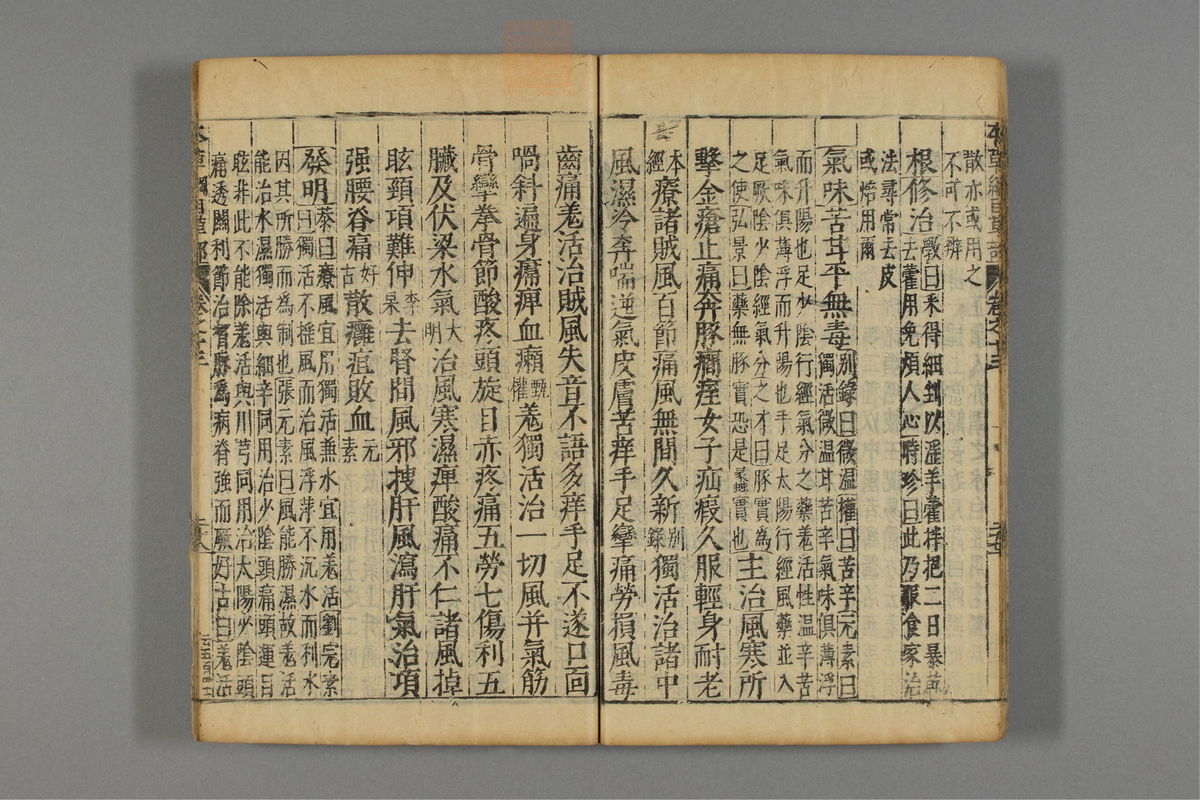 散亦或用之
不可不辨
根修治斅曰采得細剉以淫羊藿拌挹二日暴乾
去藿用免煩人心時珍曰此乃服食家治
法尋常去皮
或焙用爾
氣味苦甘平無毒别錄曰微温權曰苦辛元素曰
獨活微温甘苦辛氣味俱薄浮
而升陽也足少陰行經氣分之藥羗活性温辛苦
氣味俱薄浮而升陽也手足太陽行經風藥並入
足厥陰少陰經氣分之才曰豚實為
之使弘景曰藥無豚實恐是蠡實也主治風寒所
擊金瘡止痛奔豚癇痓女子疝瘕久服輕身耐老
本經療諸賊風百節痛風無問久新别錄獨活治諸中
風濕冷奔喘逆氣皮膚苦痒手足攣痛勞損風毒
齒痛羗活治賊風失音不語多痒手足不遂口面
喎斜遍身㿏痺血癩甄權羗獨活治一切風并氣筋
骨攣拳骨節酸疼頭旋目赤疼痛五勞七傷利五
臟及伏梁水氣大明治風寒濕痺酸痛不仁諸風掉
眩頸項難伸李杲去腎間風邪搜肝風瀉肝氣治項
强腰脊痛好古散癰疽敗血元素
發明恭曰療風宜用獨活兼水宜用羗活劉完素
曰獨活不摇風而治風浮萍不沉水而利水
因其所勝而為制也張元素曰風能勝濕故羗活
能治水濕獨活與細辛同用治少陰頭痛頭運目
眩非此不能除羗活與川芎同用治太陽少陰頭
痛透關利節治督脈為病脊强而厥好古曰羗活